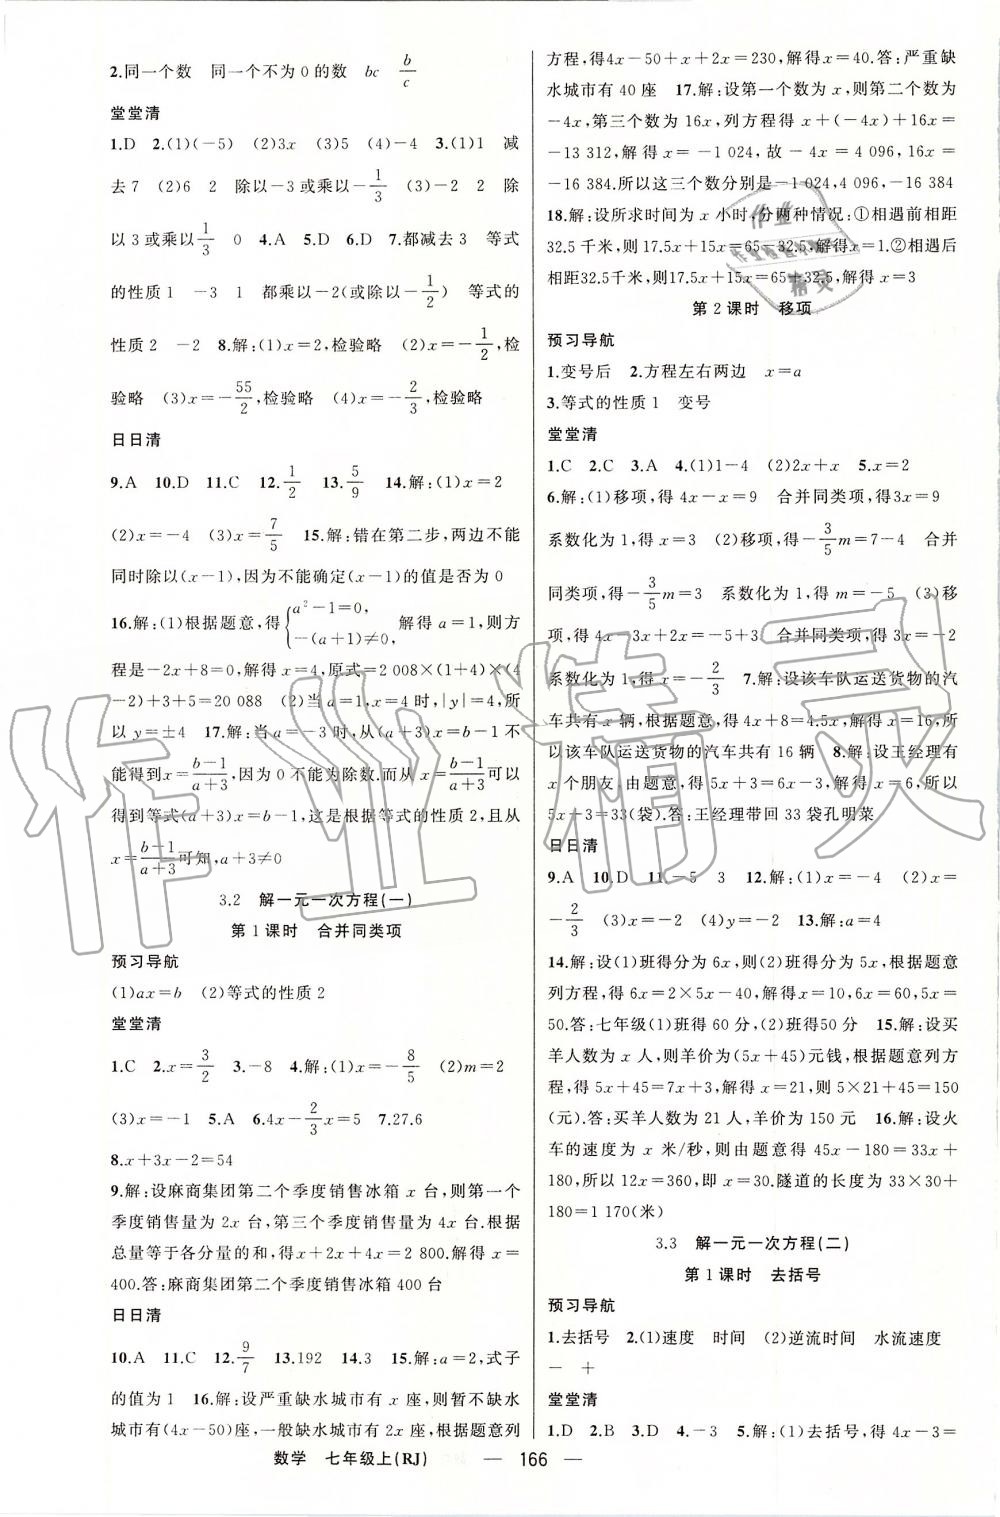 2.同一个数　同一个不为0的数　bc　b/c
堂堂清
1.D　2.(1)(－5)　(2)3x　(3)5　(4)－4　3.(1)1　减
去7　(2)6　2　除以－3或乘以－1/3　(3)－2　2　除
以3或乘以1/3　0　4.A　5.D　6.D　7.都减去3　等式
的性质1　－3　1　都乘以－2(或除以－1/2)　等式的
性质2　－2　8.解:(1)x＝2,检验略　(2)x＝－1/2,检
验略　(3)x＝－55/2,检验略　(4)x＝－2/3,检验略
日日清
9.A　10.D　11.C　12.1/2　13.5/9　14.解:(1)x＝2
(2)x＝－4　(3)x＝7/5　15.解:错在第二步,两边不能
同时除以(x－1),因为不能确定(x－1)的值是否为0
16.解:(1)根据题意,得{a²－1＝0, －(a＋1)≠0,　解得a＝1,则方
程是－2x＋8＝0,解得x＝4,原式＝2 008×(1＋4)×(4
－2)＋3＋5＝20 088　(2)当a＝1,x＝4时,|y|＝4,所
以y＝±4　17.解:当a＝－3时,从(a＋3)x＝b－1不
能得到x＝(b－1)/(a＋3),因为0不能为除数.而从x＝(b－1)/(a＋3)可以
得到等式(a＋3)x＝b－1,这是根据等式的性质2,且从
x＝(b－1)/(a＋3)可知,a＋3≠0
3.2　解一元一次方程(一)
第1课时　合并同类项
预习导航
(1)ax＝b　(2)等式的性质2
堂堂清
1.C　2.x＝3/2　3.－8　4.解:(1)x＝－8/5　(2)m＝2
(3)x＝－1　5.A　6.4x－2/3x＝5　7.27.6
8.x＋3x－2＝54
9.解:设麻商集团第二个季度销售冰箱x台,则第一个
季度销售量为2x台,第三个季度销售量为4x台.根据
总量等于各分量的和,得x＋2x＋4x＝2 800.解得x＝
400.答:麻商集团第二个季度销售冰箱400台
日日清
10.A　11.C　12.9/7　13.192　14.3　15.解:a＝2,式子
的值为1　16.解:设严重缺水城市有x座,则暂不缺水
城市有(4x－50)座,一般缺水城市有2x座.根据题意列
方程,得4x－50＋x＋2x＝230,解得x＝40.答:严重缺
水城市有40座　17.解:设第一个数为x,则第二个数为
－4x,第三个数为16x,列方程得x＋(－4x)＋16x＝
－13 312,解得x＝－1 024,故－4x＝4 096,16x＝
－16 384.所以这三个数分别是－1 024,4 096,－16 384
18.解:设所求时间为x小时,分两种情况:①相遇前相距
32.5千米,则17.5x＋15x＝65－32.5,解得x＝1.②相遇后
相距32.5千米,则17.5x＋15x＝65＋32.5,解得x＝3
第2课时　移项
预习导航
1.变号后　2.方程左右两边　x＝a
3.等式的性质1　变号
堂堂清
1.C　2.C　3.A　4.(1)1－4　(2)2x＋x　5.x＝2
6.解:(1)移项,得4x－x＝9　合并同类项,得3x＝9
系数化为1,得x＝3　(2)移项,得－3/5m＝7－4　合并
同类项,得－3/5m＝3　系数化为1,得m＝－5　(3)移
项,得4x－3x＋2x＝－5＋3　合并同类项,得3x＝－2
系数化为1,得x＝－2/3　7.解:设该车队运送货物的汽
车共有x辆,根据题意,得4x＋8＝4.5x,解得x＝16,所
以该车队运送货物的汽车共有16辆　8.解:设王经理有
x个朋友,由题意,得5x＋3＝6x－3,解得x＝6,所以
5x＋3＝33(袋).答:王经理带回33袋孔明菜
日日清
9.A　10.D　11.－5　3　12.解:(1)x＝－4　(2)x＝
－2/3　(3)x＝－2　(4)y＝－2　13.解:a＝4
14.解:设(1)班得分为6x,则(2)班得分为5x,根据题意
列方程,得6x＝2×5x－40,解得x＝10,6x＝60,5x＝
50.答:七年级(1)班得60分,(2)班得50分　15.解:设买
羊人数为x人,则羊价为(5x＋45)元钱,根据题意列方
程,得5x＋45＝7x＋3,解得x＝21,则5×21＋45＝150
(元).答:买羊人数为21人,羊价为150元　16.解:设火
车的速度为x米/秒,则由题意得45x－180＝33x＋
180,所以12x＝360,即x＝30.隧道的长度为33×30＋
180＝1 170(米)
3.3　解一元一次方程(二)
第1课时　去括号
预习导航
1.去括号　2.(1)速度　时间　(2)逆流时间　水流速度
－　＋
堂堂清
1.D　2.B　3.A　4.－5　5.解:(1)去括号,得4x－3＝
数学　七年级上(RJ)　—　166　—
作业精灵